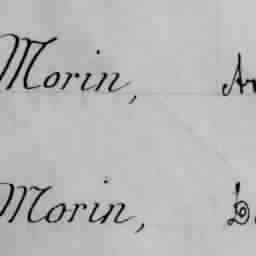 Morin,
Morin,